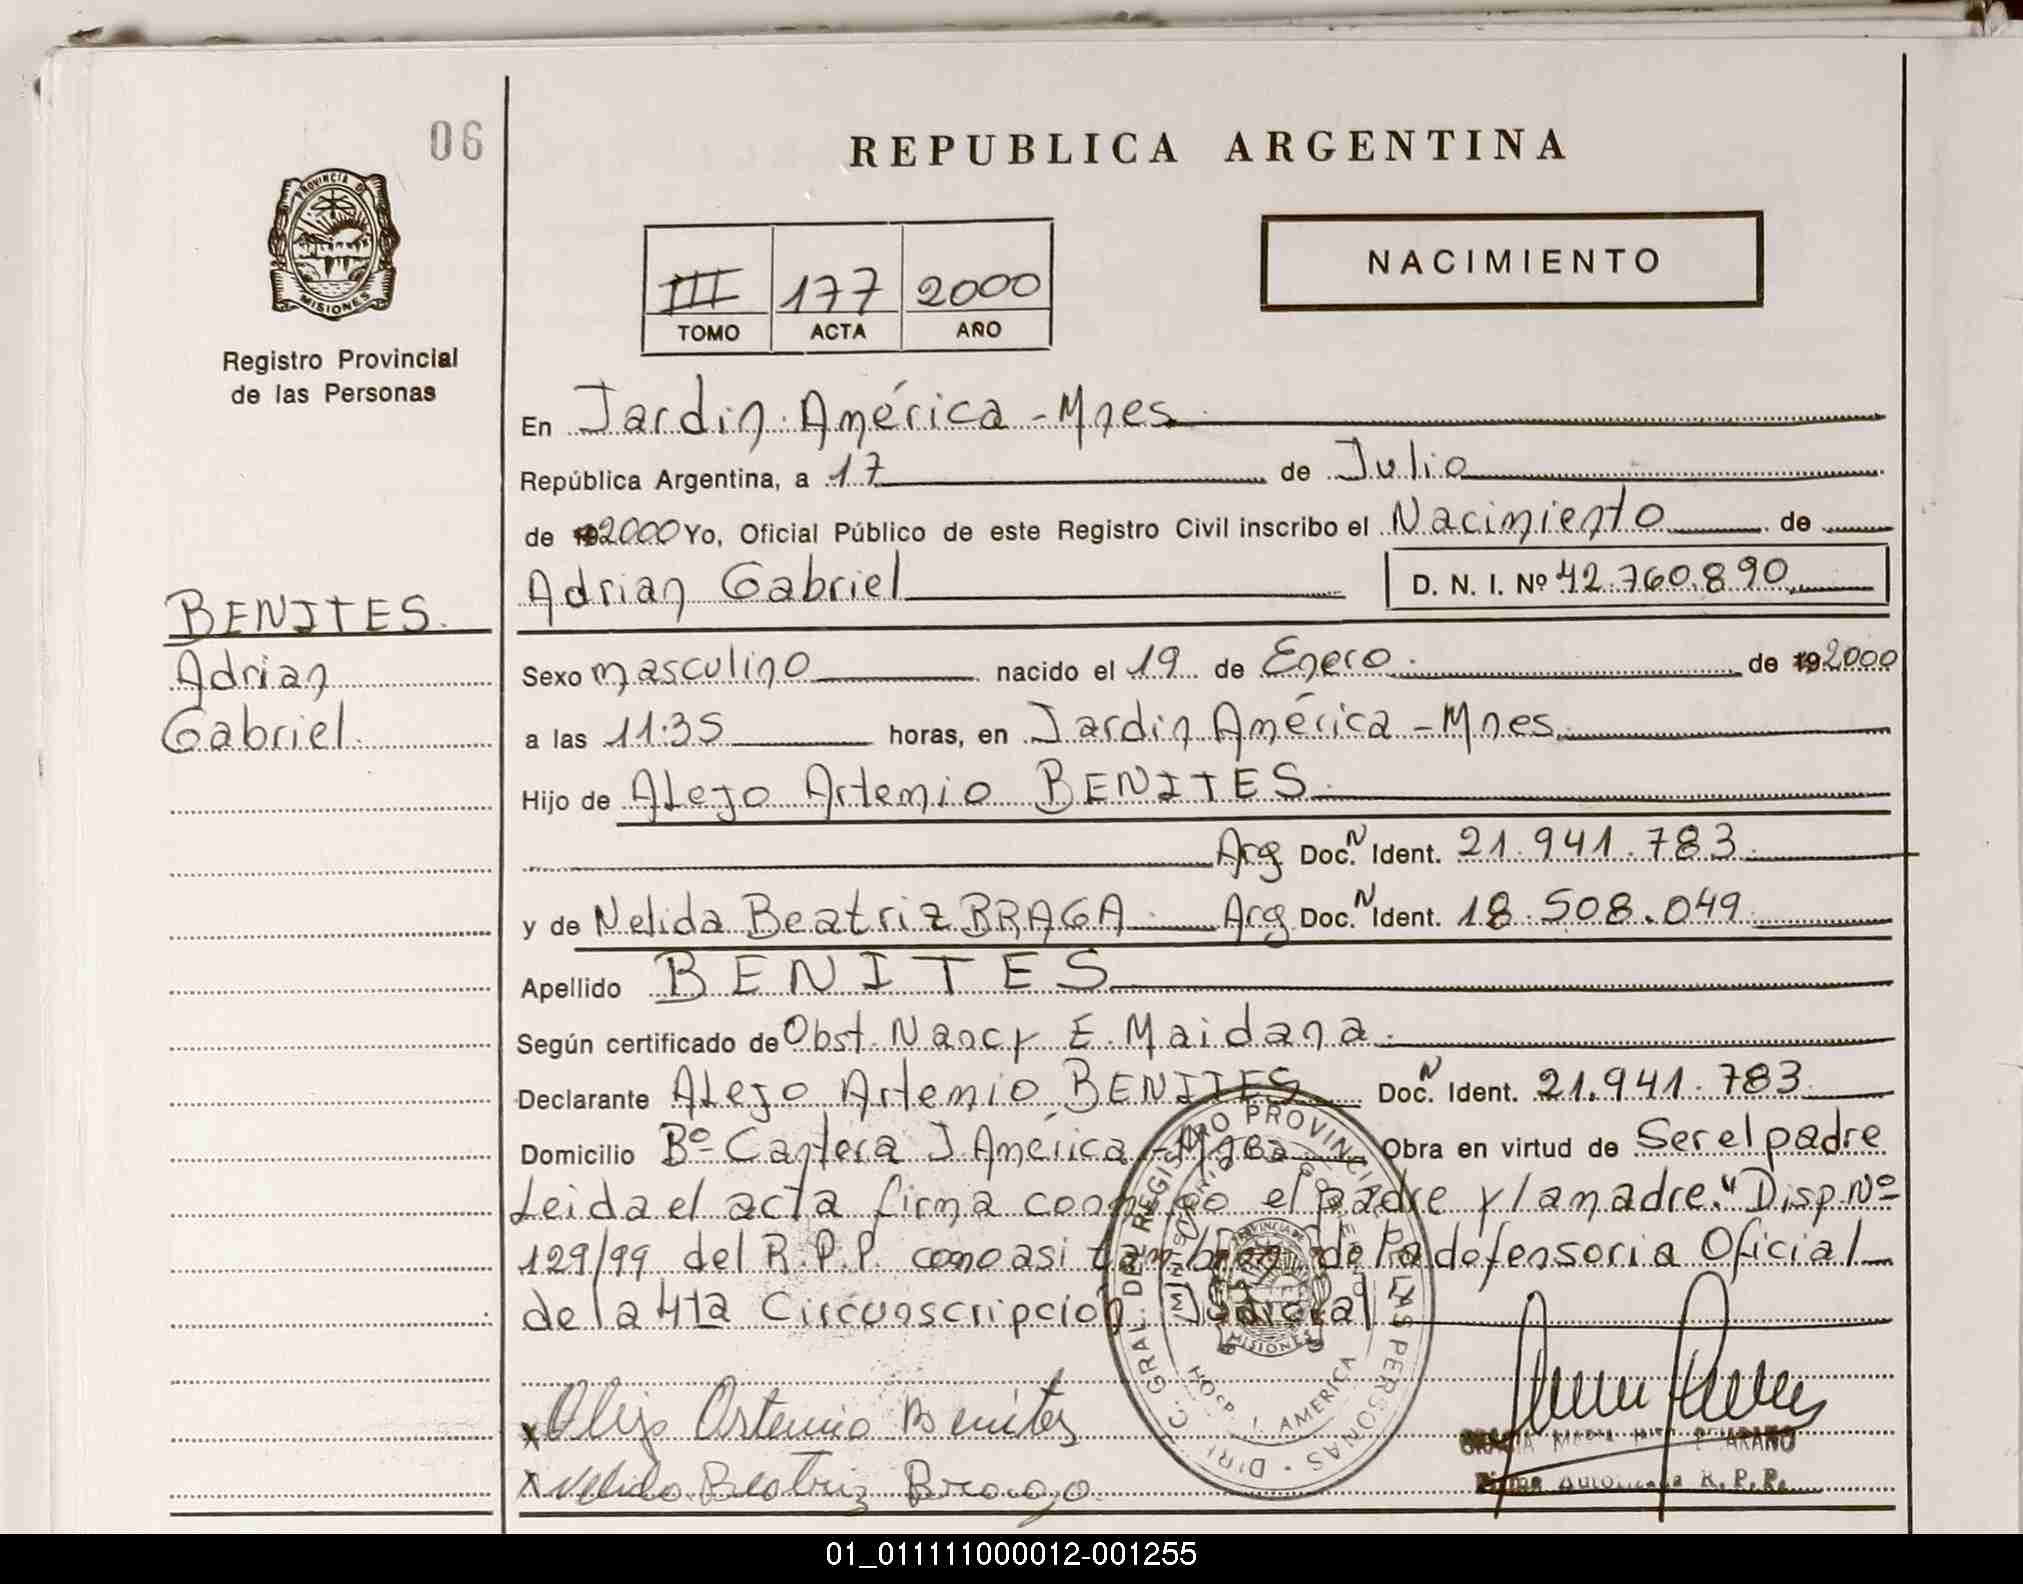 06
REPUBLICA ARGENTINA
PROVINCIA DE
MISIONES
Registro Provincial
de las Personas
III 177 2000
TOMO ACTA AÑO
NACIMIENTO
En Jardin América - Mnes
República Argentina, a 17 de Julio
de 19 2000 Yo, Oficial Público de este Registro Civil inscribo el Nacimiento de
Adrian Gabriel D. N. I. Nº 42.760.890
BENITES.
Adrian
Gabriel
Sexo masculino nacido el 19 de Enero de 19 2000
a las 11:35 horas, en Jardin América - Mnes
Hijo de Alejo Artemio BENITES
Arg Doc. N Ident. 21.941.783
y de Nelida Beatriz BRAGA Arg Doc. N Ident. 18.508.049
Apellido BENITES
Según certificado de Obst. Nancy E. Maidana
Declarante Alejo Artemio BENITES Doc. N Ident. 21.941.783
Domicilio Bº Cantera J. América - Mnes Obra en virtud de Ser el padre
Leida el acta firma conmigo el padre y la madre." Disp. Nº
129/99 del R.P.P. como asi tambien de la defensoria Oficial
de la 4ta Circunscripción Judicial
DIR. GRAL. DEL REGISTRO PROVINCIAL DE LAS PERSONAS
MINISTERIO DE GOBIERNO
HOSP. J. AMERICA
PROVINCIA DE
MISIONES
x Alejo Artemio Benites
x Nelida Beatriz Braga
Firma Autorizada R. P. P.
01_011111000012-001255